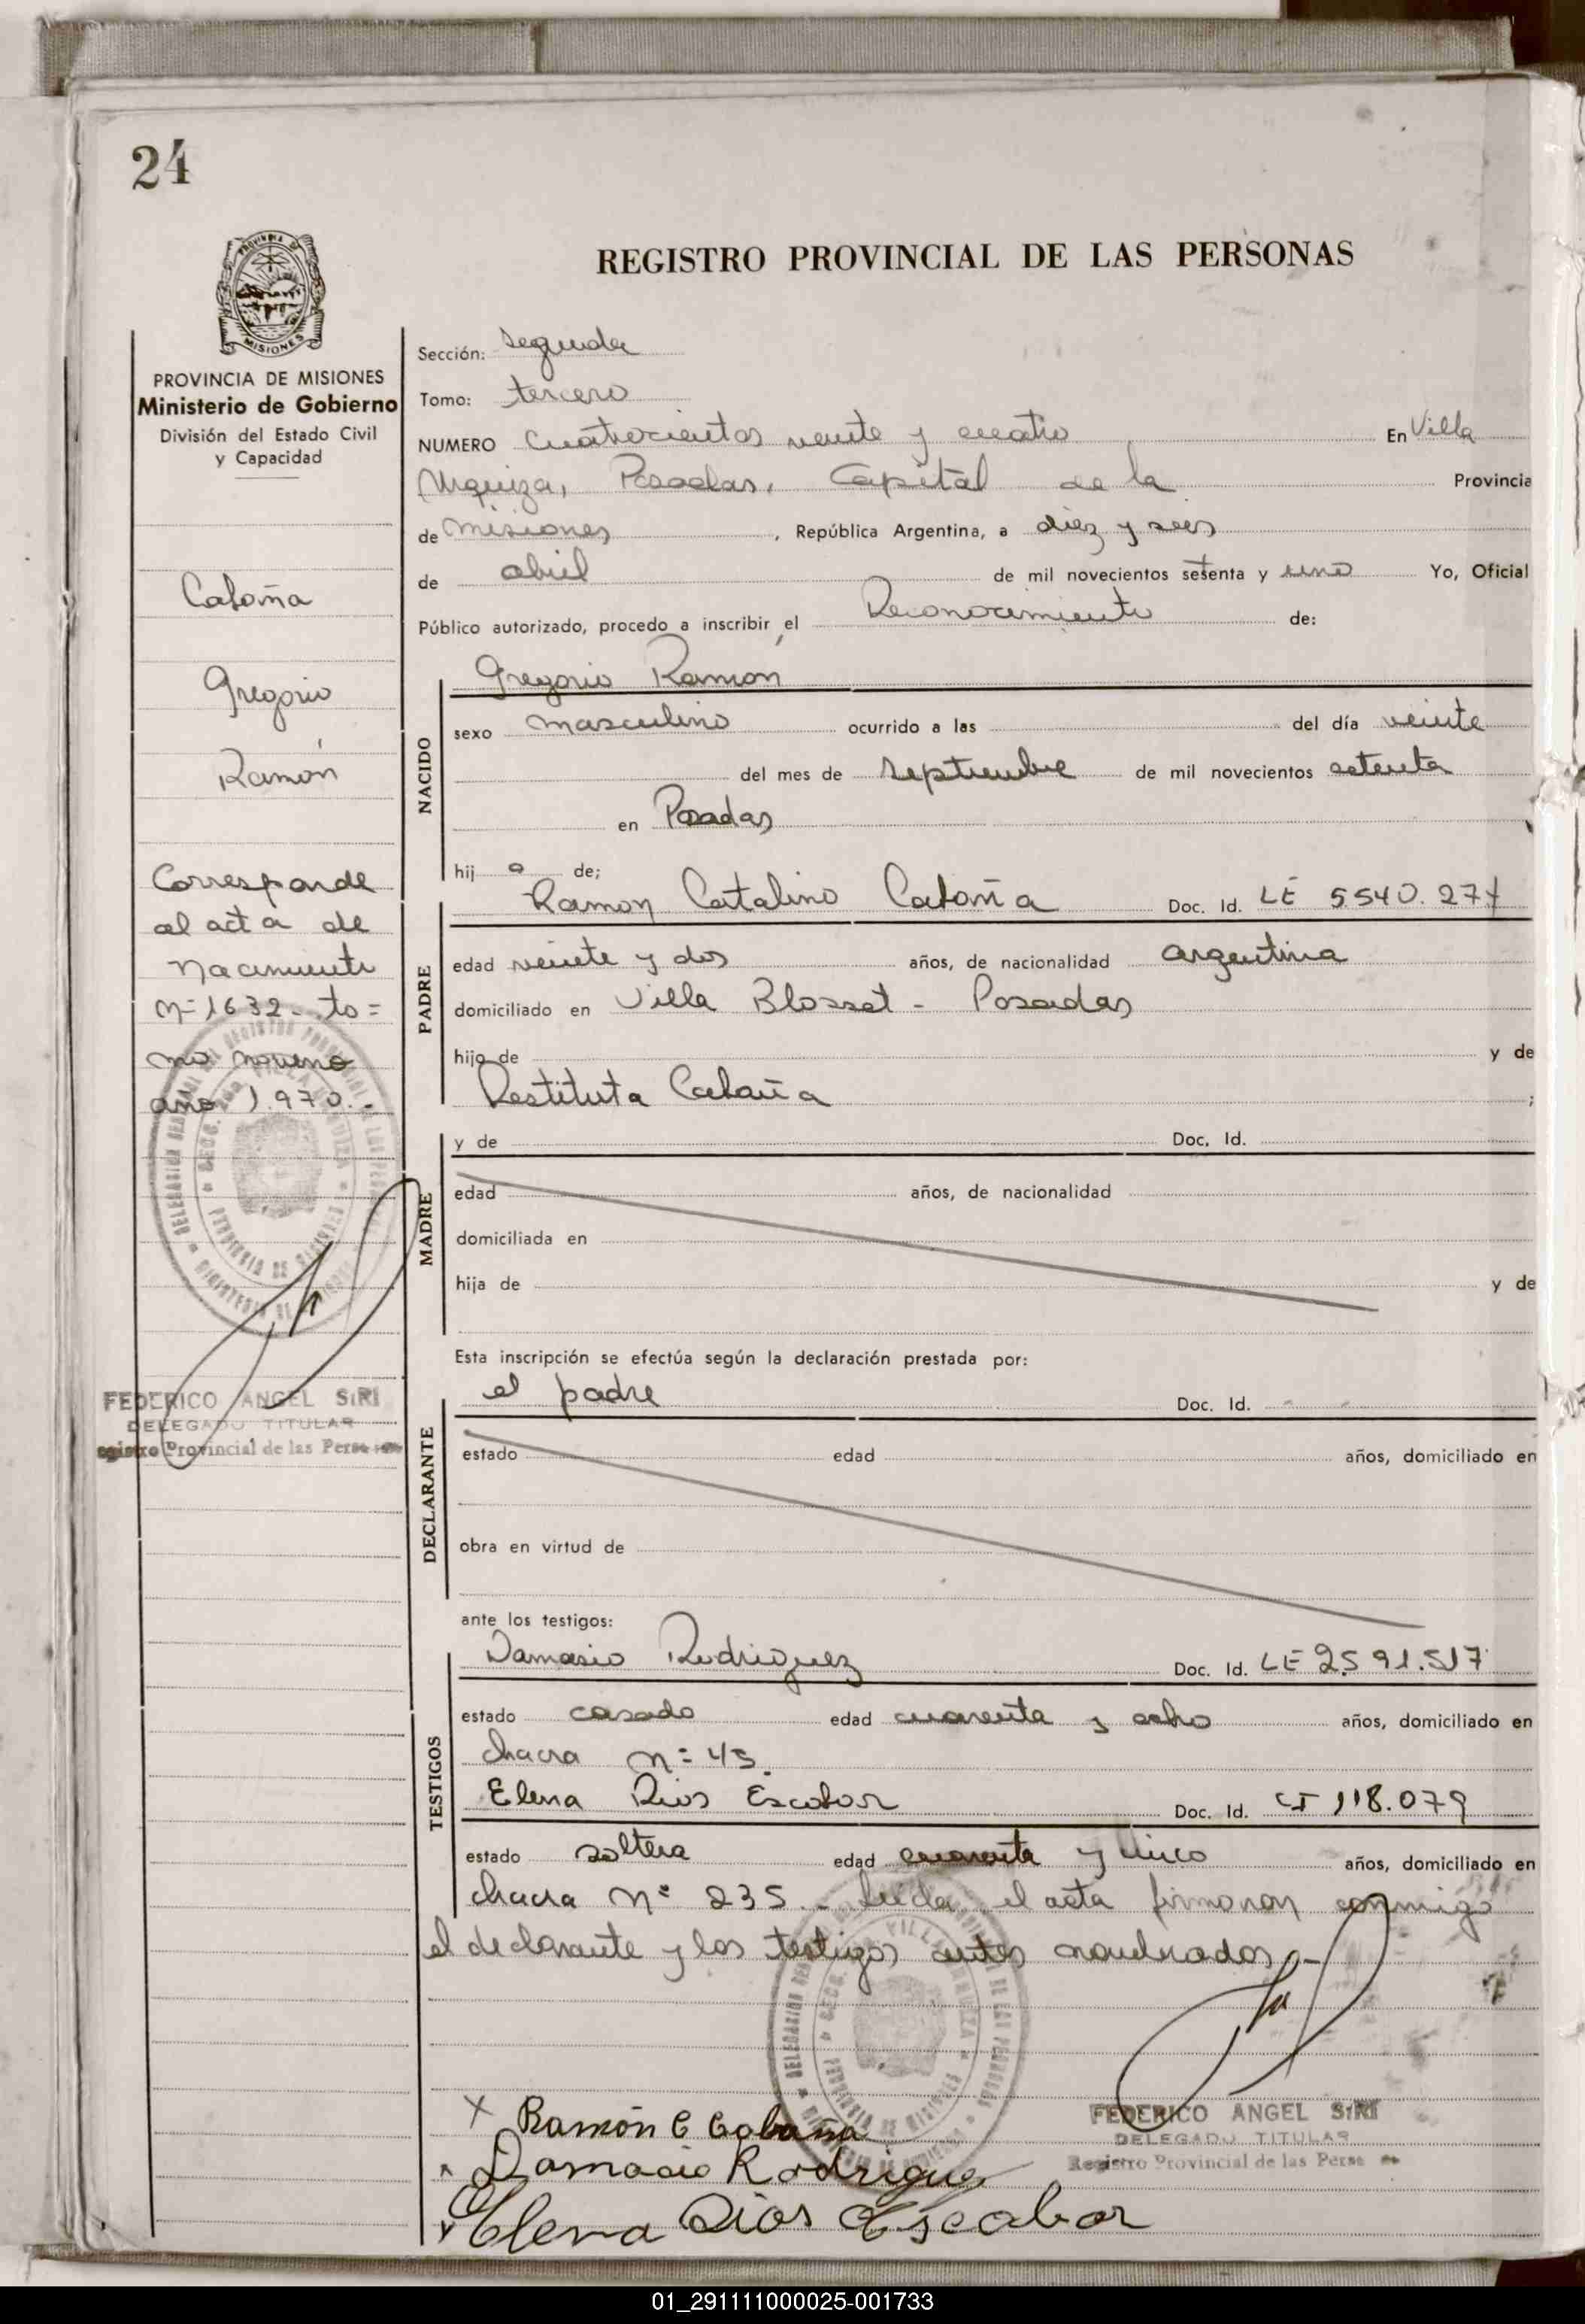 24
REGISTRO PROVINCIAL DE LAS PERSONAS
PROVINCIA DE MISIONES
Ministerio de Gobierno
División del Estado Civil
y Capacidad
Cabaña
Gregorio
Ramón
Corresponde
al acta de
Nacimiento
nº 1632 - to=
mo noveno
año 1.970.-
FEDERICO ANGEL SIRI
DELEGADO TITULAR
egistro Provincial de las Perso
Sección: segunda
Tomo: tercero
NUMERO cuatrocientos veinte y cuatro En Villa
Urquiza, Posadas, Capital de la Provincia
de Misiones, República Argentina, a diez y seis
de abril de mil novecientos setenta y uno Yo, Oficial
Público autorizado, procedo a inscribir el Reconocimiento de:
Gregorio Ramón
NACIDO
sexo masculino ocurrido a las del día veinte
del mes de septiembre de mil novecientos setenta
en Posadas
hij o de;
Ramon Catalino Cabaña Doc. Id. LE 5.540.277
PADRE
edad veinte y dos años, de nacionalidad argentina
domiciliado en Villa Blosset - Posadas
hijo de y de
Restituta Cabaña ;
MADRE
y de Doc. Id.
edad años, de nacionalidad
domiciliada en
hija de y de
Esta inscripción se efectúa según la declaración prestada por:
el padre Doc. Id.
DECLARANTE
estado edad años, domiciliado en
obra en virtud de
ante los testigos:
Damasio Rodriguez Doc. Id. LE 2.591.517
TESTIGOS
estado casado edad cuarenta y ocho años, domiciliado en
chacra nº 43.
Elena Rios Escobar Doc. Id. CI 118.079
estado soltera edad cuarenta y cinco años, domiciliado en
chacra Nº 235.- Leida el acta firmaron conmigo
el declarante y los testigos antes nombrados.-
X Ramón C Cabaña
Damacio Rodrigue
Elena Rios Escabar
FEDERICO ANGEL SIRI
DELEGADO TITULAR
Registro Provincial de las Perso
01_291111000025-001733